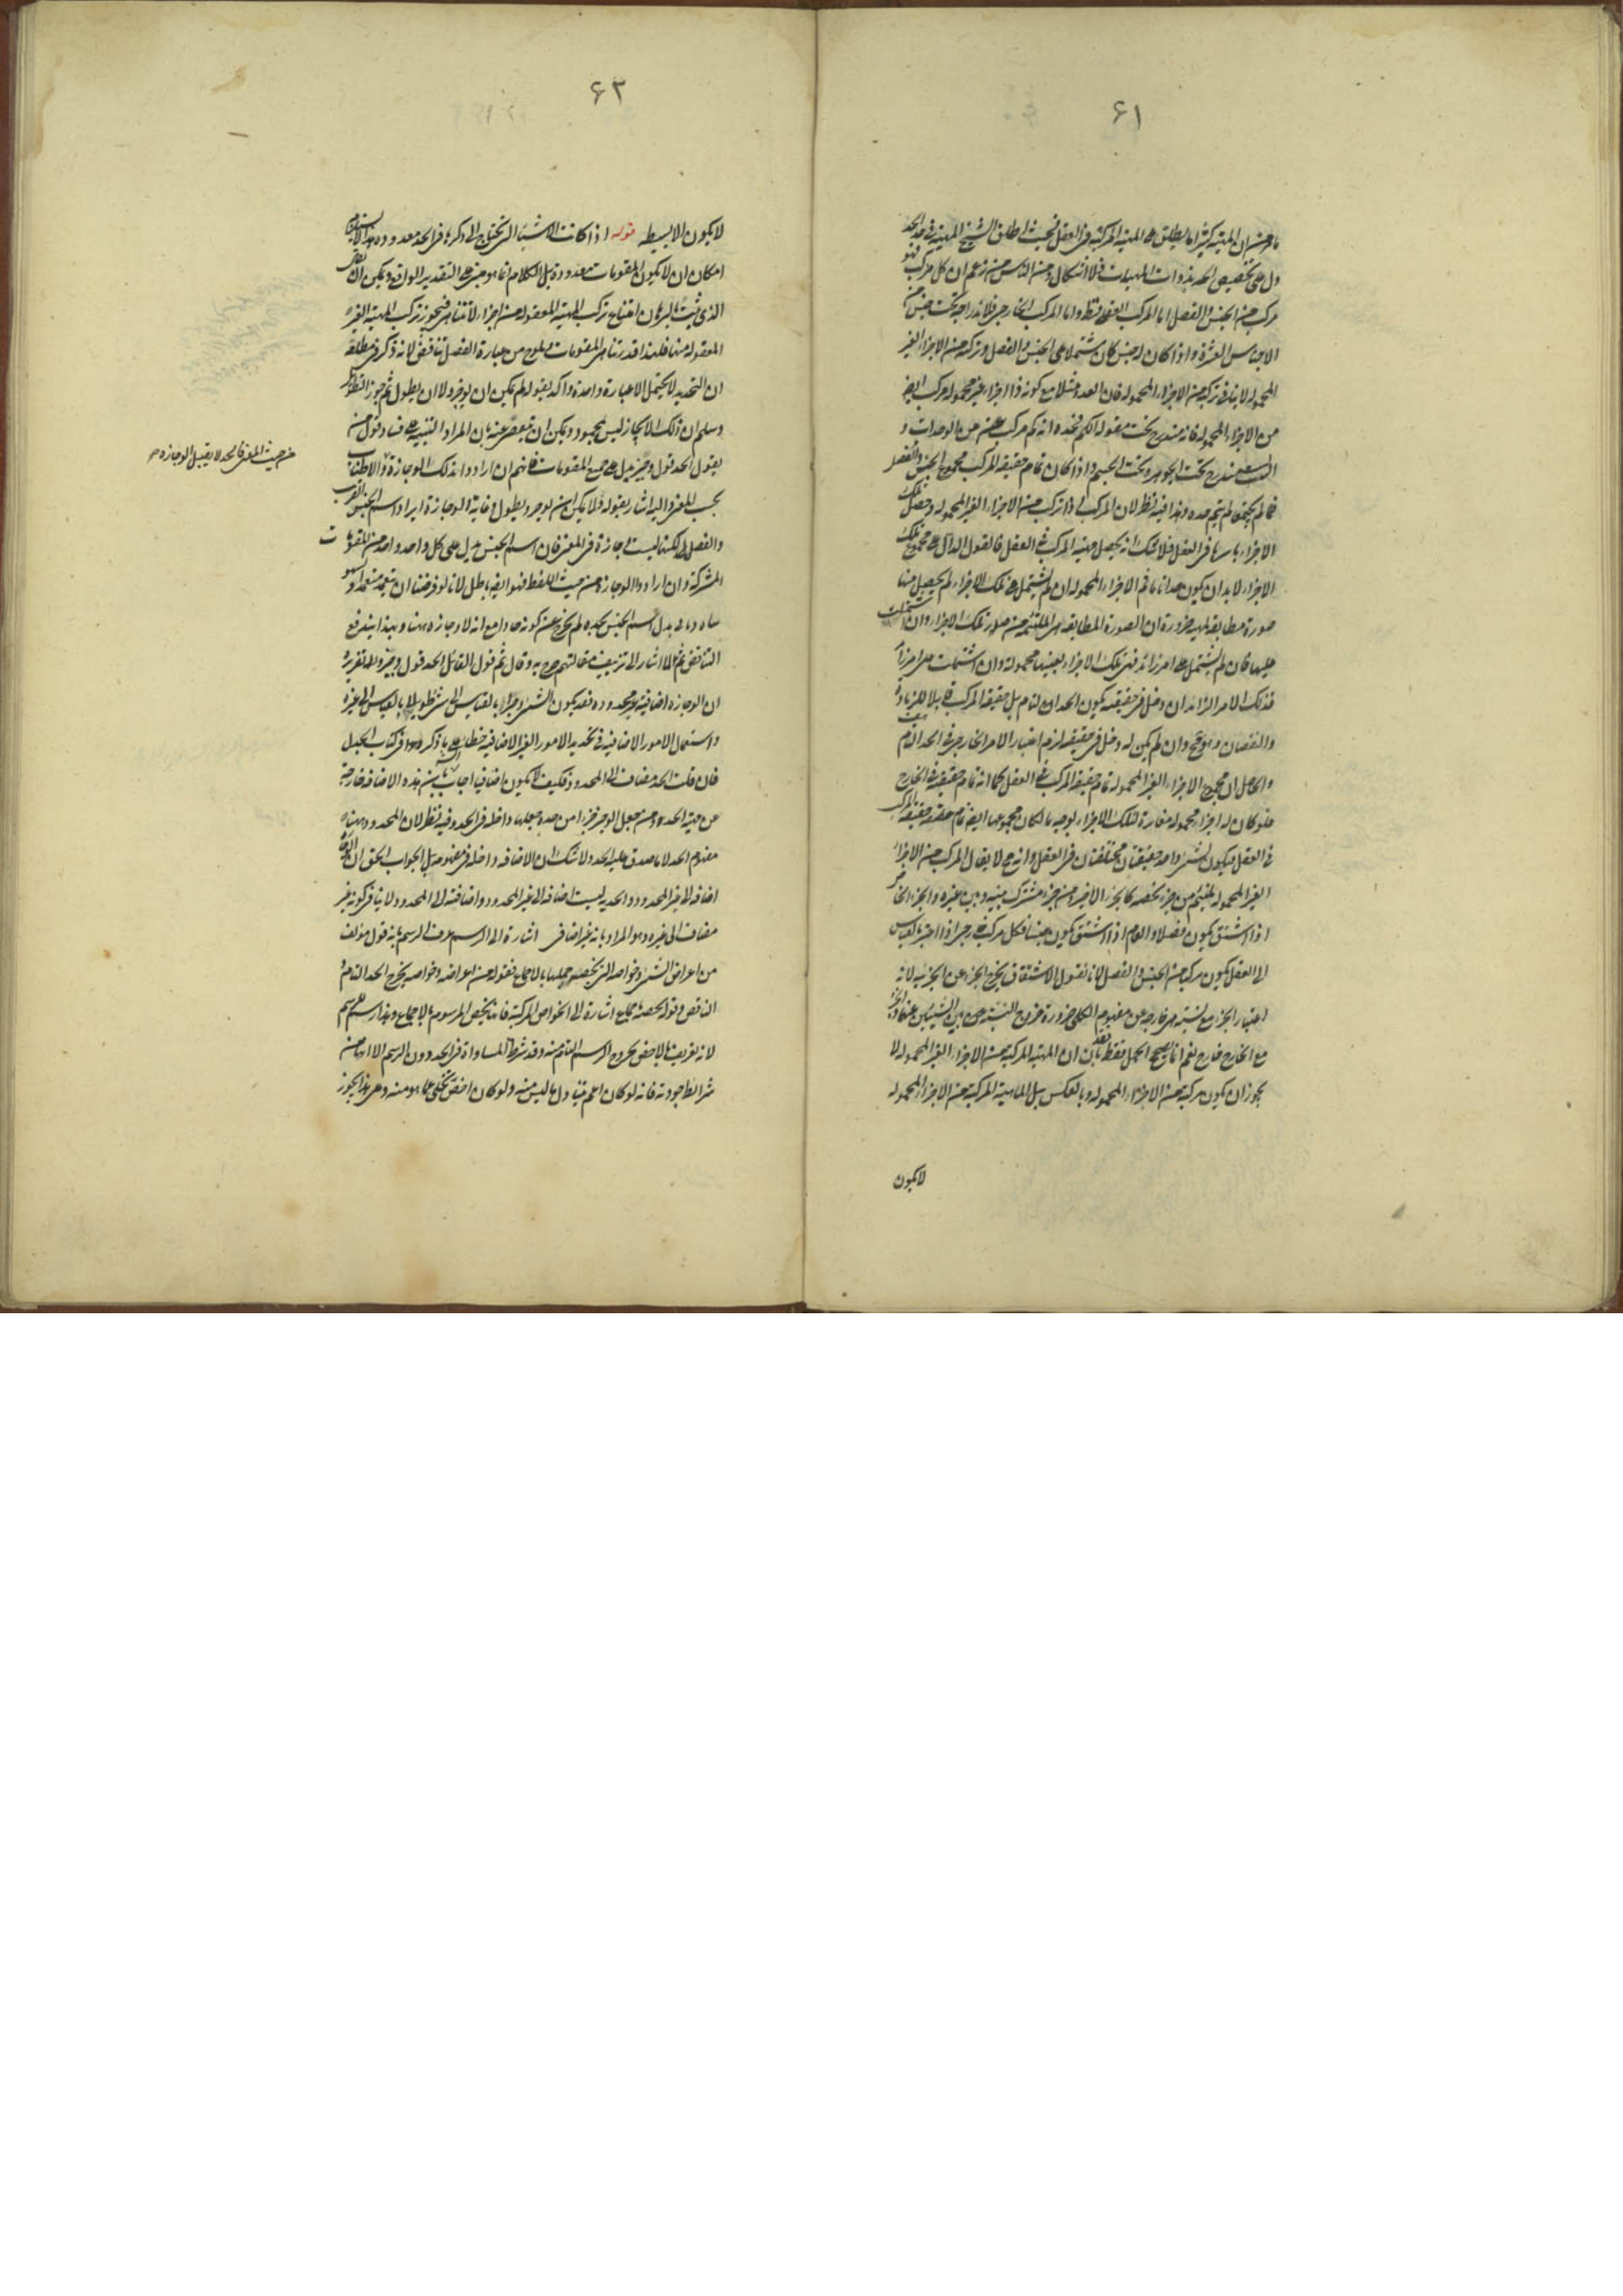 ۶۱
ما مر من ان المهية كثيرا ما يطلق على المهية المركبة في العقل فحيث اطلق الشيخ المهية في حد الحد
دل على تخصيص الحد بذوات المهيات فلا اشكال ومن الناس من زعم ان كل مركب فهو
مركب من الجنس والفصل اما المركب العقلي فظ واما المركب الخارجي فلاندراجه تحت جنس من
الاجناس العشرة واذا كان له جنس كان مشتملا على الجنس والفصل وتركبه من الاجزاء الغير
المحمولة لا ينافي تركبه من الاجزاء المحمولة فان العدد مثلا مع كونه ذا اجزاء غير محمولة مركب ايضا
من الاجزاء المحمولة فانه مندرج تحت مقولة الكم فحده انه كم مركب من الوحدات و
البيت مندرج تحت الجوهر وتحت الجسم واذا كان تمام حقيقة المركب مجموع الجنس والفصل
فما لم يجتمعا لم يتم حده وهذا فيه نظر لان المركب اذا تركب من الاجزاء الغير المحمولة وحصل تلك
الاجزاء باسرها في العقل فلا شك انه يحصل مهية المركب في العقل فالقول الدال على مجموع تلك
الاجزاء لا بد ان يكون حدا تاما ثم الاجزاء المحمولة ان لم يشتمل على تلك الاجزاء لم يحصل منها
صورة مطابقة لمهية ضرورة ان الصورة المطابقة هي الملتئمة من صور تلك الاجزاء وان اشتملت
عليها فان لم يشتمل على امر زائد فهي تلك الاجزاء بعينها محمولة وان اشتملت على امر زائد
فذلك الامر الزائد ان دخل في حقيقته يكون الحد التام بل حقيقة المركب قابلا للزيادة
والنقصان وهو مح وان لم يكن له دخل في حقيقته لزم اعتبار الامر الخارجي في الحد التام
والحاصل ان مجموع الاجزاء الغير المحمولة تمام حقيقة المركب في العقل كما انه تمام حقيقته في الخارج
فلو كان له اجزاء محمولة مغايرة لتلك الاجزاء بوجه ما لكان مجموعها ايضا تمام حقيقة المركب
في العقل فيكون لشيء واحد حقيقتان مختلفتان في العقل وانه مح لا يقال المركب من الاجزاء
الغير المحمولة يلتئم من جزء يخصه كالجزء الاخير ومن جزء مشترك بينه وبين غيره والجزء الخاص
اذا اشتق يكون فصلا والعام اذا اشتق يكون جنسا فكل مركب خارجي اذا اعتبر بالقياس
الى العقل يكون مركبا من الجنس والفصل لانا نقول الاشتقاق يخرج الجزء عن الجزئية لانه
اعتبار الجزء مع نسبة هي خارجة عن مفهوم الكل ضرورة خروج النسبة بين الشيئين عنهما والجزء
مع الخارج خارج نعم انما يصح الحمل فقط فقد بان ان المهية المركبة من الاجزاء الغير المحمولة لا
يجوز ان يكون مركبة من الاجزاء المحمولة وبالعكس بل الماهية المركبة من الاجزاء المحمولة
لا يكون
۶۲
لا يكون الا بسيطة قوله اذا كانت الاشياء التي يحتاج الى ذكرها في الحد معدودة
امكان ان لا يكون المقومات معدودة بل الكلام انما هو مبني على التقدير الواقع ويمكن ان يقال
الذي ثبت بالبرهان امتناع تركب المهية المعقولة من اجزاء لا تتناهى فيجوز تركب المهية الغير
المعقولة منها فلهذا قدر تناهي المقومات ويلوح من عبارة الفصل تناقض لانه ذكر في مطلعه
ان التحديد لا يحتمل الا عبارة واحدة واكد بقوله لم يكن ان يوجز ولا ان يطول ثم جوز التطويل
وسلم ان ذلك الايجاز ليس بمحمود ويمكن ان يعتذر عنه بان المراد التنبيه على فساد قول من
يقول الحد قول وجيز يدل على جميع المقومات فانهم ان ارادوا بذلك الوجازة والاطناب
بحسب المعنى واليه اشار بقوله فلا يمكن ان يوجز ويطول وغاية الوجازة ايراد اسم الجنس القريب
والفصل لكنها ليست وجازة في المعنى فان اسم الجنس يدل على كل واحد واحد من المقومات
المشتركة وان ارادوا الوجازة من حيث اللفظ فهو ايضا باطل لانا لو فرضنا ان يتعمد متعمد او سهو
ساه وياتي بدل اسم الجنس بحده لم يخرج عن كونه حدا مع انه لا وجازة ههنا وبهذا يندفع
التناقض ثم لما اشار الى تزييف مقالتهم صرح به وقال ثم قول القائل الحد قول وجيز وله تقريره
ان الوجازة اضافية غير محدودة فقد يكون الشيء وجيزا بالقياس الى شيء طويلا بالقياس الى غيره
واستعمال الامور الاضافية في تحديد الامور الغير الاضافية خطاء على ما ذكروه في كتاب الجدل
فان قلت الحد مضاف الى المحدود فكيف لا يكون اضافيا اجاب بان هذه الاضافة خارجة
عن مهية الحد ومن جعل الوجيز جزءا من حده جعلها داخلة في الحد وفيه نظر لان المحدود ههنا
مفهوم الحد لا ما صدق عليه الحد ولا شك ان الاضافة داخلة في مفهومه بل الجواب الحق ان
اضافة الى غير المحدود والحدية ليست اضافة الى غير المحدود واضافته الى المحدود لا ينافي كونه غير
مضاف الى غيره وهو المراد بانه غير اضافي اشارة الى الرسم عرف الرسم بانه قول مؤلف
من اعراض الشيء وخواصه التي يخصه جملتها بالاجتماع فقوله من اعراضه وخواصه يخرج الحد التام و
الناقص وقوله يخصه جماع اشارة الى الخواص المركبة فانها يخص المرسوم بالاجتماع وهذا رسم للرسم
لانه تعريف بالاخص لخروج الرسم التام منه وقد شرط المساواة في الحد دون الرسم الا انها من
شرائط جودته فانه لو كان اعم يتناول ما ليس منه ولو كان اخص يخلى عما هو منه وعلى هذا يجوز
من حيث المعنى فالحد لا يقبل الوجازة